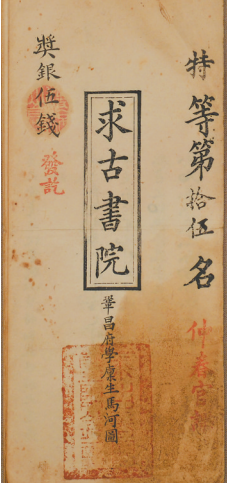 特等第拾伍名
仲春官
求古書院
鞏昌府學廩生馬河圖
獎銀伍錢
發訖